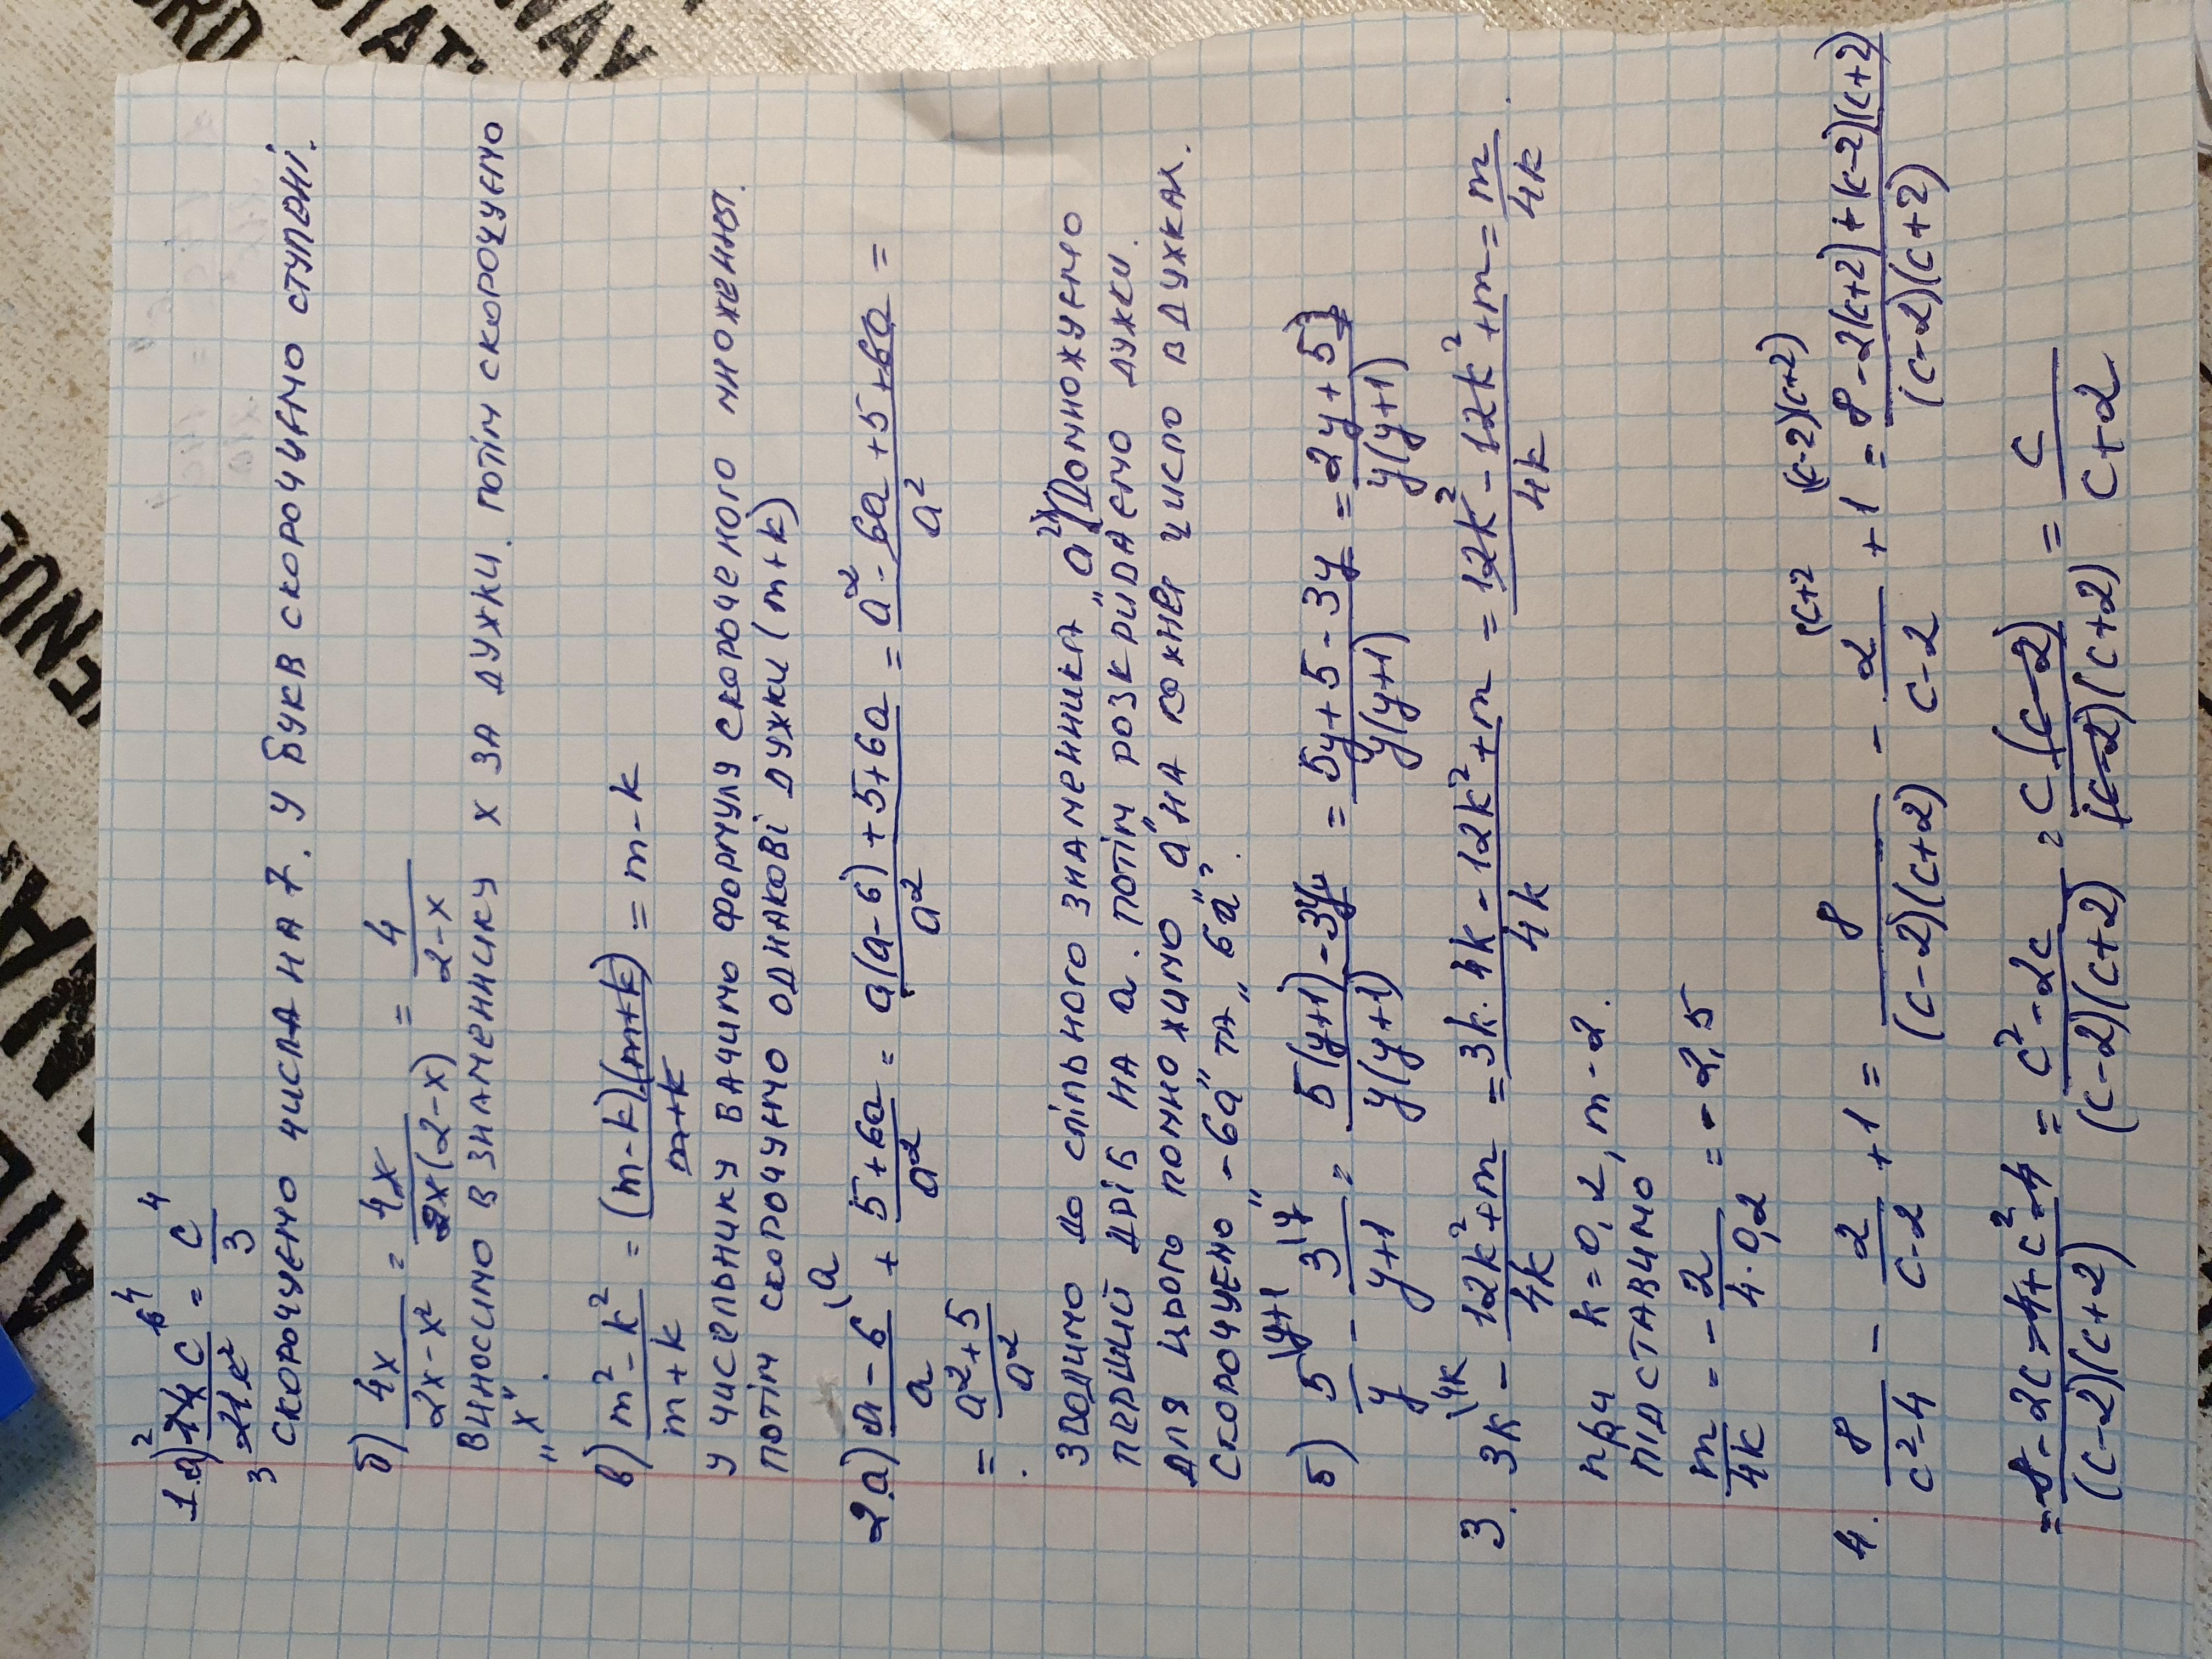 1.а) 14c⁶/21c² = c⁴/3
скорочуємо числа на 7. У букв скорочуємо ступені.
б) 4x/2x-x² = 4x/x(2-x) = 4/2-x
виносимо в знаменнику x за дужки. потім скорочуємо
„x".
в) m²-k²/m+k = (m-k)(m+k)/m+k = m-k
у чисельнику бачимо формулу скороченого множення.
потім скорочуємо однакові дужки (m+k)
2.а) a-6/a \a + 5+6a/a² = a(a-6)+5+6a/a² = a²-6a+5+6a/a² =
= a²+5/a².
зводимо до спільного знаменника „a²". Домножуємо
перший дріб на a. потім розкриваємо дужки.
для цього помножимо „a" на кожне число в дужках.
скорочуємо „-6a" та „6a".
б) 5/y \y+1 - 3/y+1 \y = 5(y+1)-3y/y(y+1) = 5y+5-3y/y(y+1) = 2y+5/y(y+1)
3. 3k \4k - 12k²+m/4k = 3k·4k-12k²+m/4k = 12k²-12k²+m/4k = m/4k.
при k=0,2, m-2.
підставимо
m/4k = -2/4·0,2 = -2,5
4. 8/c²-4 - 2/c-2 + 1 = 8/(c-2)(c+2) - 2/c-2 \c+2 + 1 \(c-2)(c+2) = 8-2(c+2)+(c-2)(c+2)/(c-2)(c+2)
= 8-2c-4+c²-4/(c-2)(c+2) = c²-2c/(c-2)(c+2) = c(c-2)/(c-2)(c+2) = c/c+2